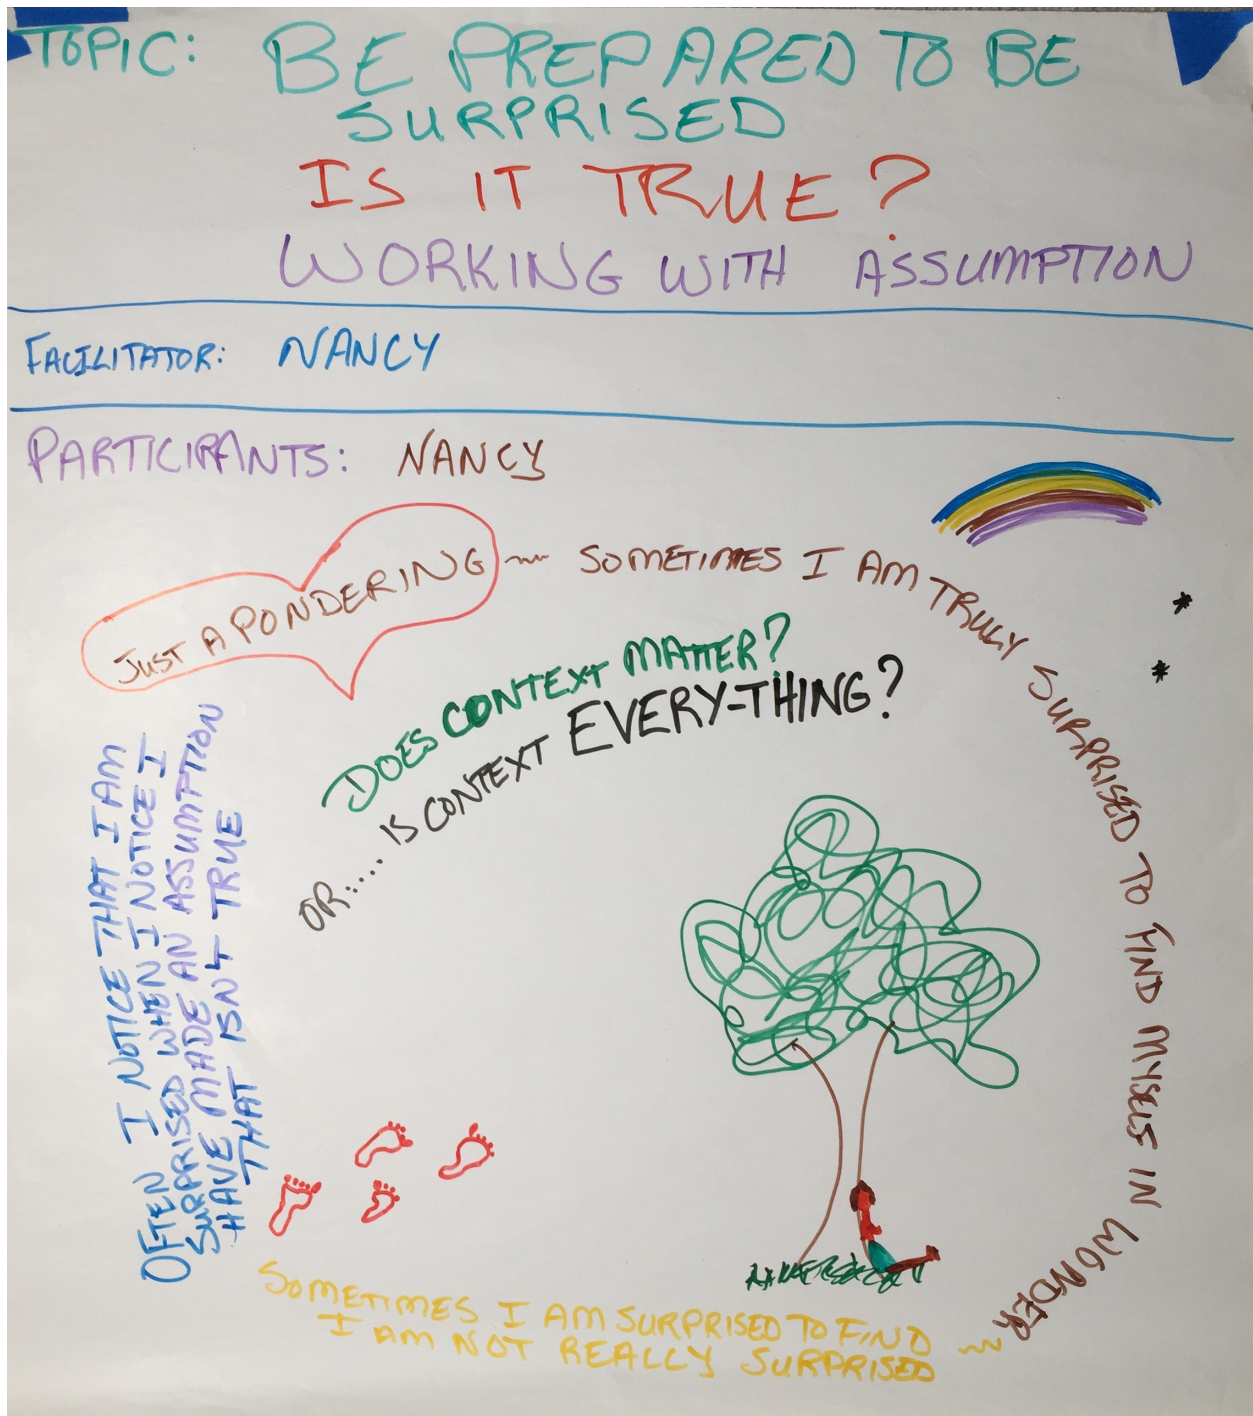 TOPIC: BE PREPARED TO BE
SURPRISED
IS IT TRUE?
WORKING WITH ASSUMPTION
FACILITATOR: NANCY
PARTICIPANTS: NANCY
JUST A PONDERING ~ SOMETIMES I AM TRULY SURPRISED TO FIND MYSELF IN WONDER ~
DOES CONTEXT MATTER?
OR.... IS CONTEXT EVERY-THING?
OFTEN I NOTICE THAT I AM
SURPRISED WHEN I NOTICE I
HAVE MADE AN ASSUMPTION
THAT ISN'T TRUE
SOMETIMES I AM SURPRISED TO FIND
I AM NOT REALLY SURPRISED